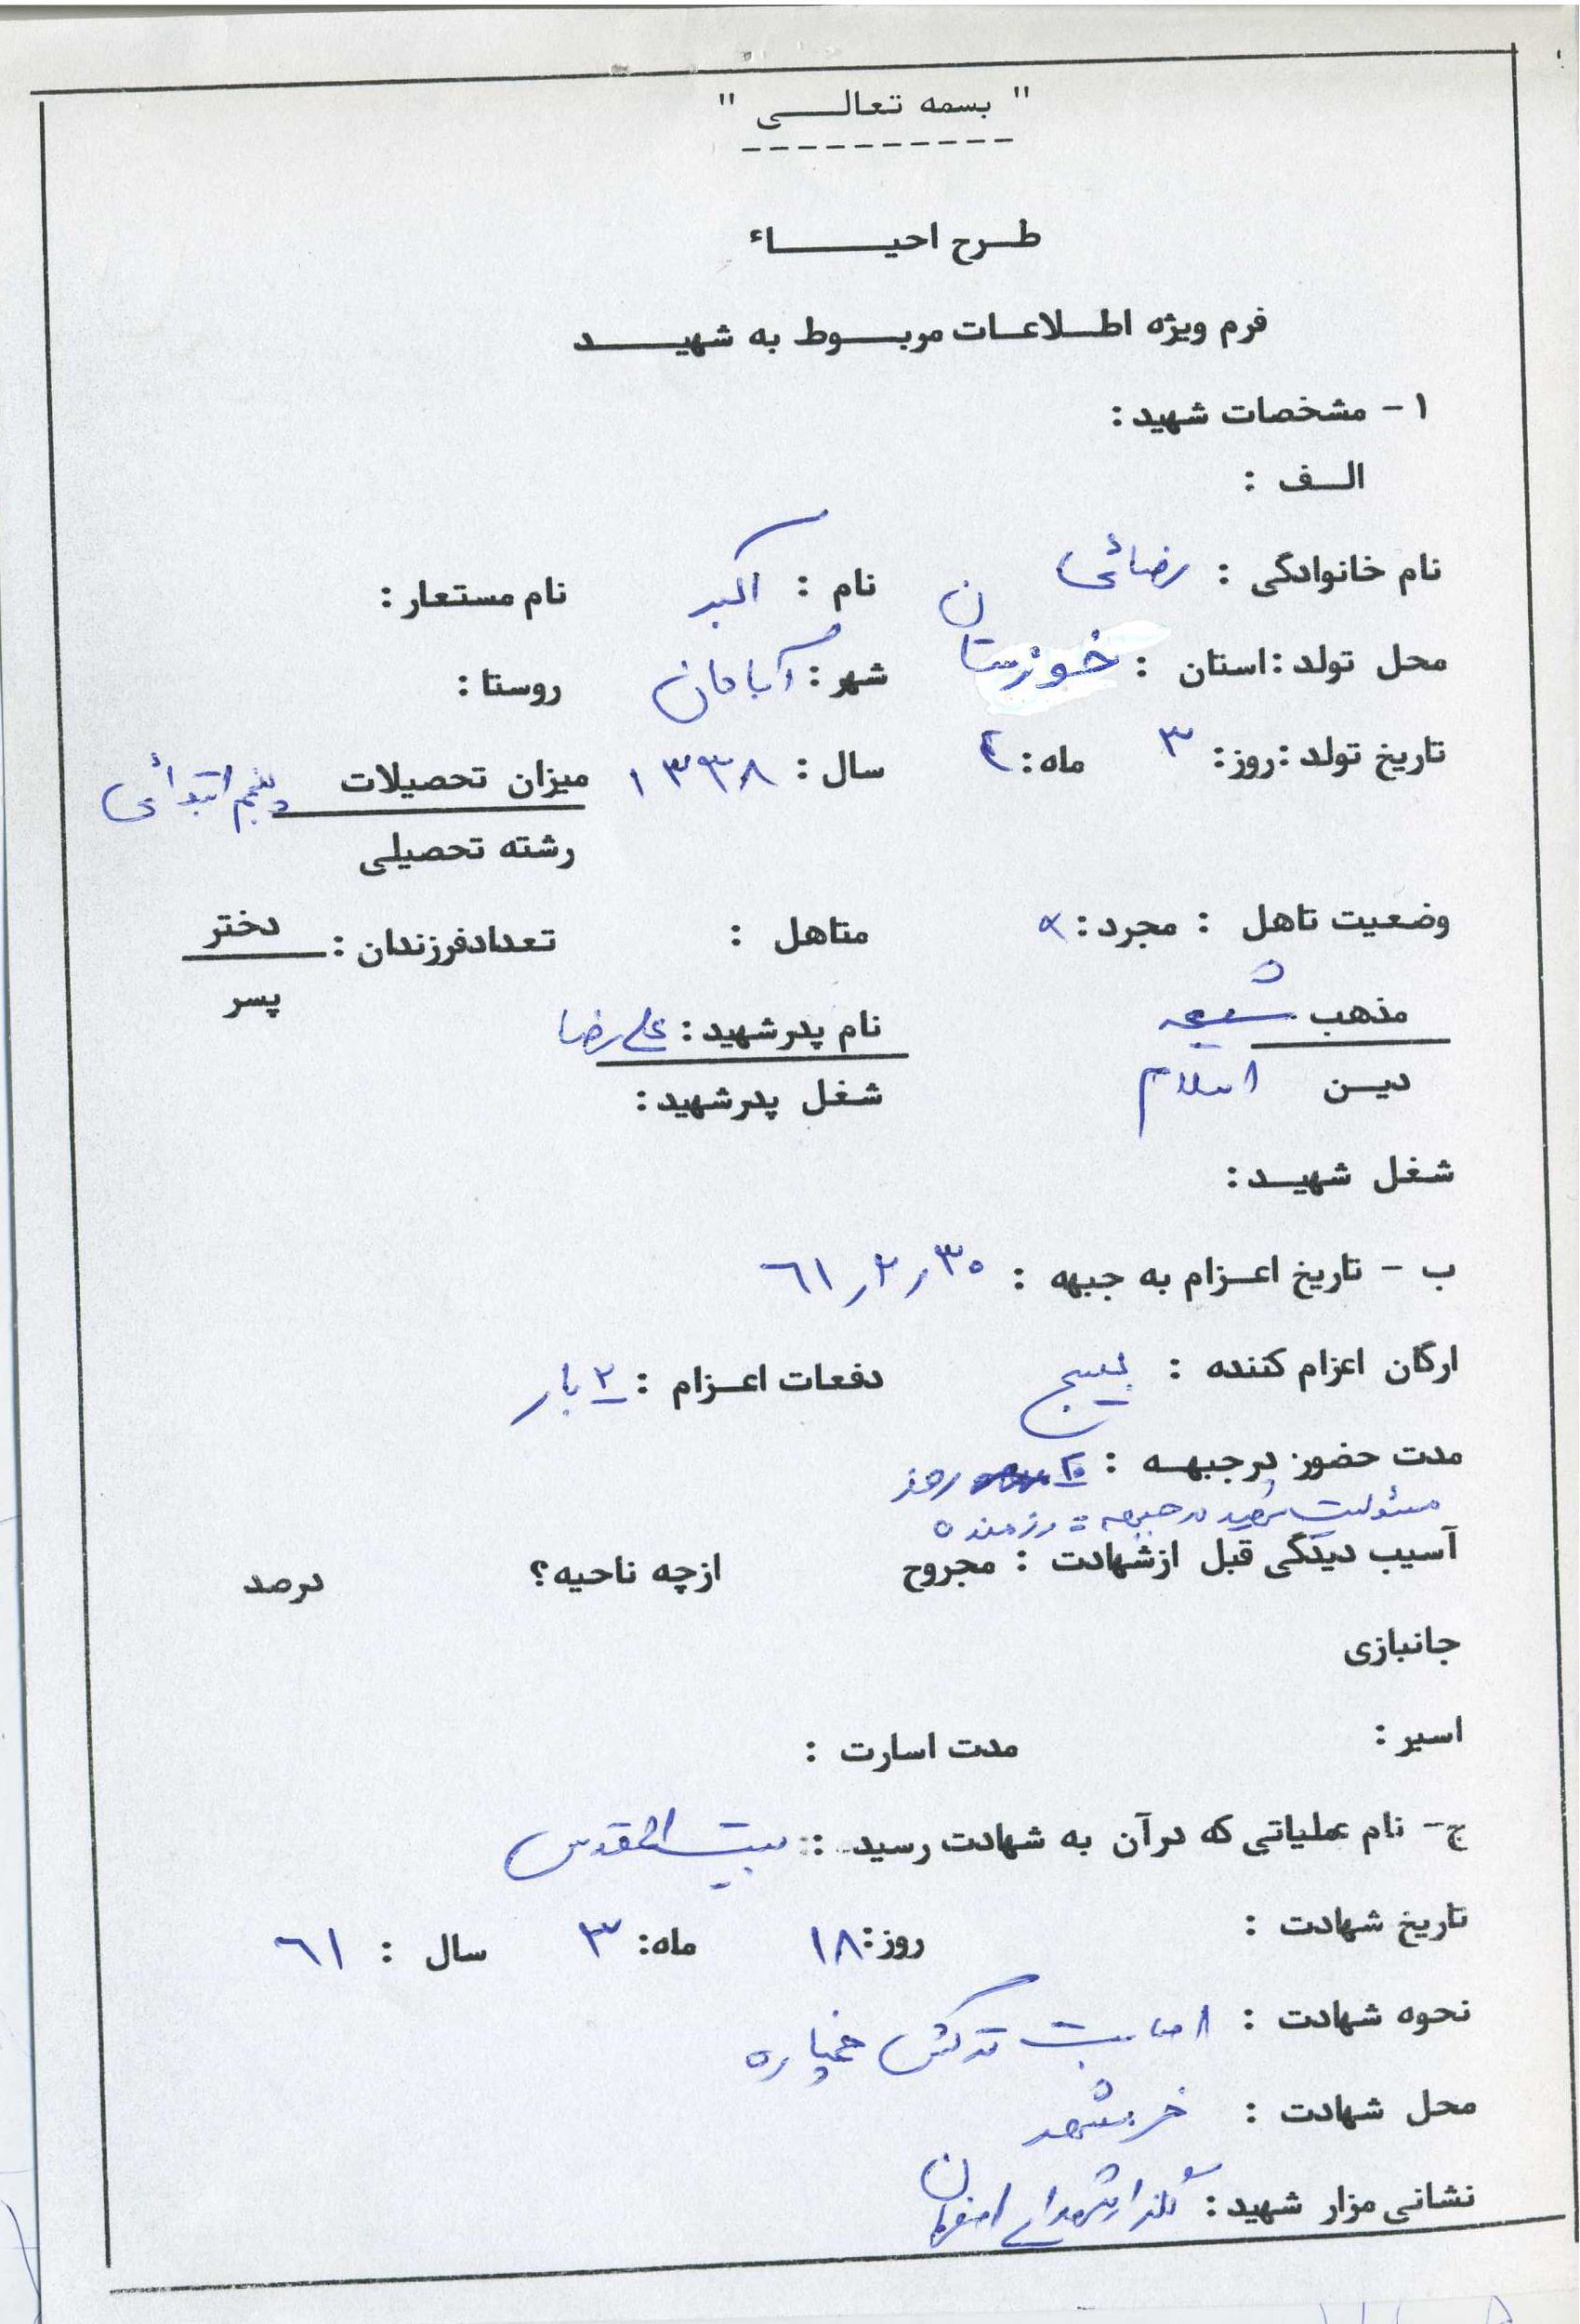 " بسمه تعالی "
طرح احیاء
فرم ویژه اطلاعات مربوط به شهید
۱ - مشخصات شهید :
الف :
نام خانوادگی : رضائی نام : اکبر نام مستعار :
محل تولد : استان : خوزستان شهر : آبادان روستا :
تاریخ تولد : روز : ۳ ماه : ٤ سال : ۱۳۳۸ میزان تحصیلات پنجم ابتدائی
رشته تحصیلی
وضعیت تاهل : مجرد : × متاهل : تعداد فرزندان : دختر
پسر
مذهب شیعه نام پدر شهید : علی رضا
دین اسلام شغل پدر شهید :
شغل شهید :
ب - تاریخ اعزام به جبهه : ۳۰ ر ۲ ر ٦۱
ارگان اعزام کننده : بسیج دفعات اعزام : ۲ بار
مدت حضور درجبهه : روز
مسئولیت شهید در جبهه = رزمنده
آسیب دیدگی قبل ازشهادت : مجروح ازچه ناحیه؟ درصد
جانبازی
اسیر : مدت اسارت :
ج - نام عملیاتی که درآن به شهادت رسید : بیت المقدس
تاریخ شهادت : روز : ۱۸ ماه : ۳ سال : ٦۱
نحوه شهادت : اصابت ترکش خمپاره
محل شهادت : خرمشهر
نشانی مزار شهید : گلزار شهدای اصفهان